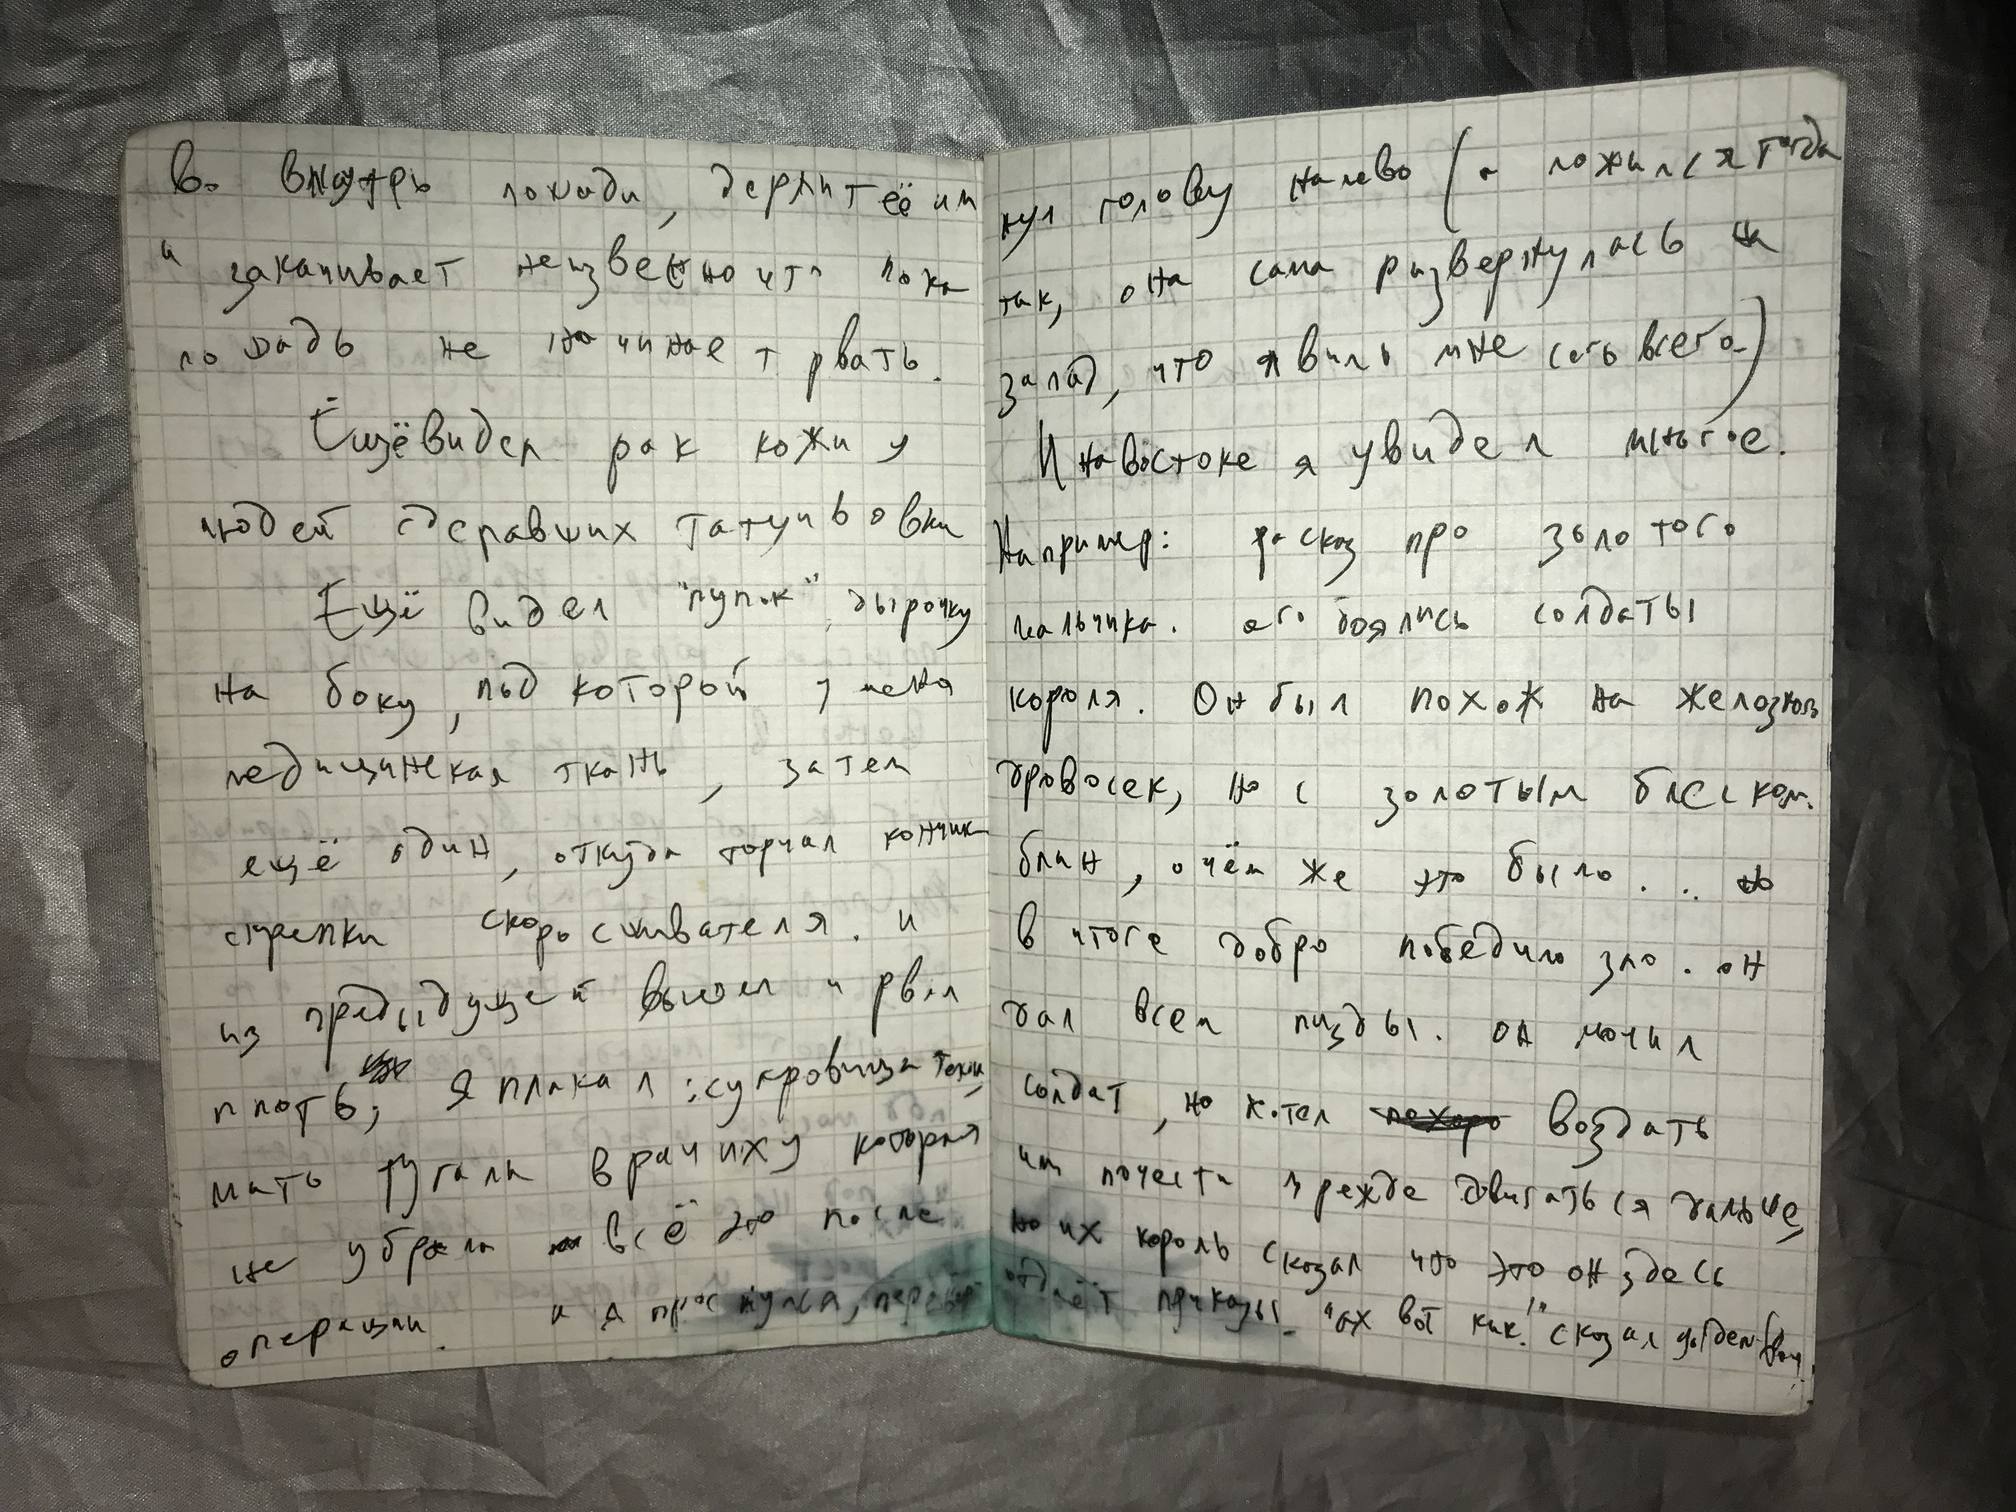 во внутрь лошади, держит её им
и закачивает неизвестно что пока
лошадь не начинает рвать.
Ещё видел рак кожи у
людей сдеравших татуировки
Ещё видел "пупок", дырочку
на боку, под которой у меня
медицинская ткань, затем
ещё один, откуда торчал кончик
скрепки скоросшивателя. и
из предыдущей вышел и рвал
плоть; я плакал :
мать ругала врачиху которая
не убрала всё это после
операции. и я проснулся,
нул голову налево (а ложился тогда
так, она сама развернулась на
запад, что явило мне сеть всего.)
И на востоке я увидел многое.
Например: расказ про золотого
мальчика. его боялись солдаты
короля. Он был похож на железном
дровосек, но с золотым блеском.
блин, о чём же это было... но
в итоге добро победило зло. он
дал всем пизды. он мочил
солдат, но хотел воздать
им почести прежде двигаться дальше,
но их король сказал что это он здесь
отдаёт приказы. "ах вот как!" сказал golden boy.